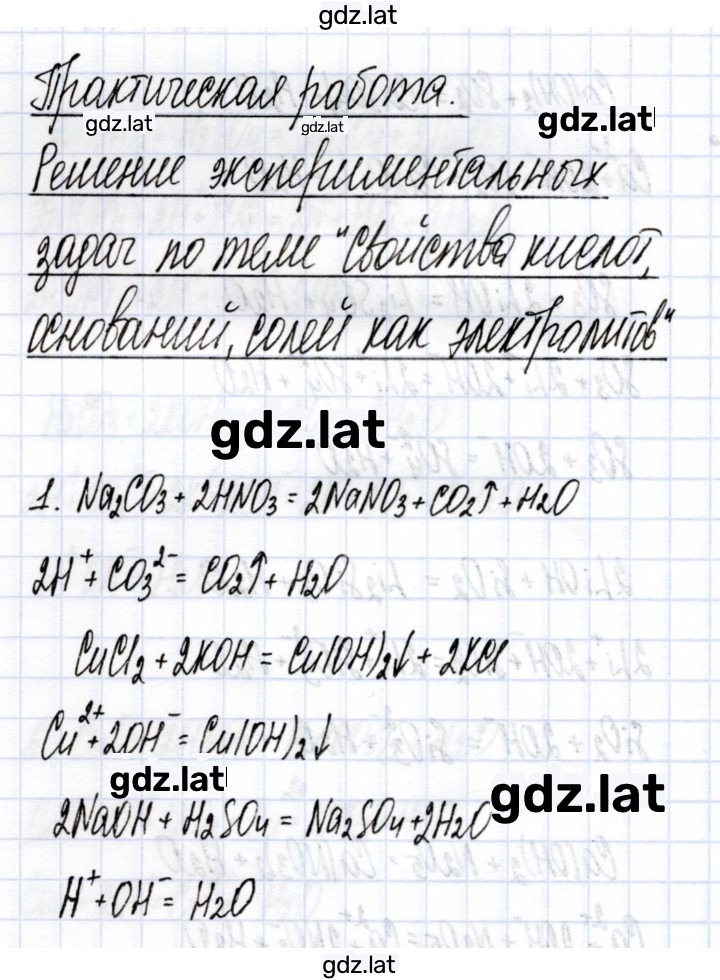 gdz.lat
Практическая работа.
gdz.lat gdz.lat gdz.lat
Решение экспериментальных
задач по теме "Свойства кислот,
оснований, солей как электролитов"
gdz.lat
1. Na₂CO₃ + 2HNO₃ = 2NaNO₃ + CO₂↑ + H₂O
2H⁺ + CO₃²⁻ = CO₂↑ + H₂O
CuCl₂ + 2KOH = Cu(OH)₂↓ + 2KCl
Cu²⁺ + 2OH⁻ = Cu(OH)₂↓
gdz.lat gdz.lat
2NaOH + H₂SO₄ = Na₂SO₄ + 2H₂O
H⁺ + OH⁻ = H₂O
gdz.lat